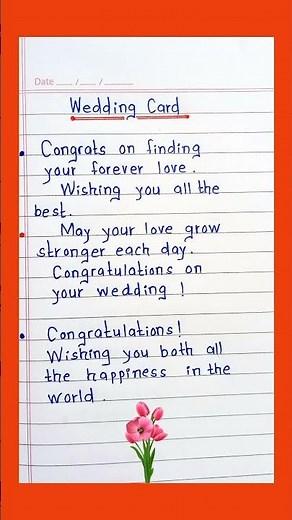 Date ____ /____ /______
Wedding Card
Congrats on finding
your forever love.
Wishing you all the
best.
May your love grow
stronger each day.
Congratulations on
your wedding !
Congratulations!
Wishing you both all
the happiness in the
world.